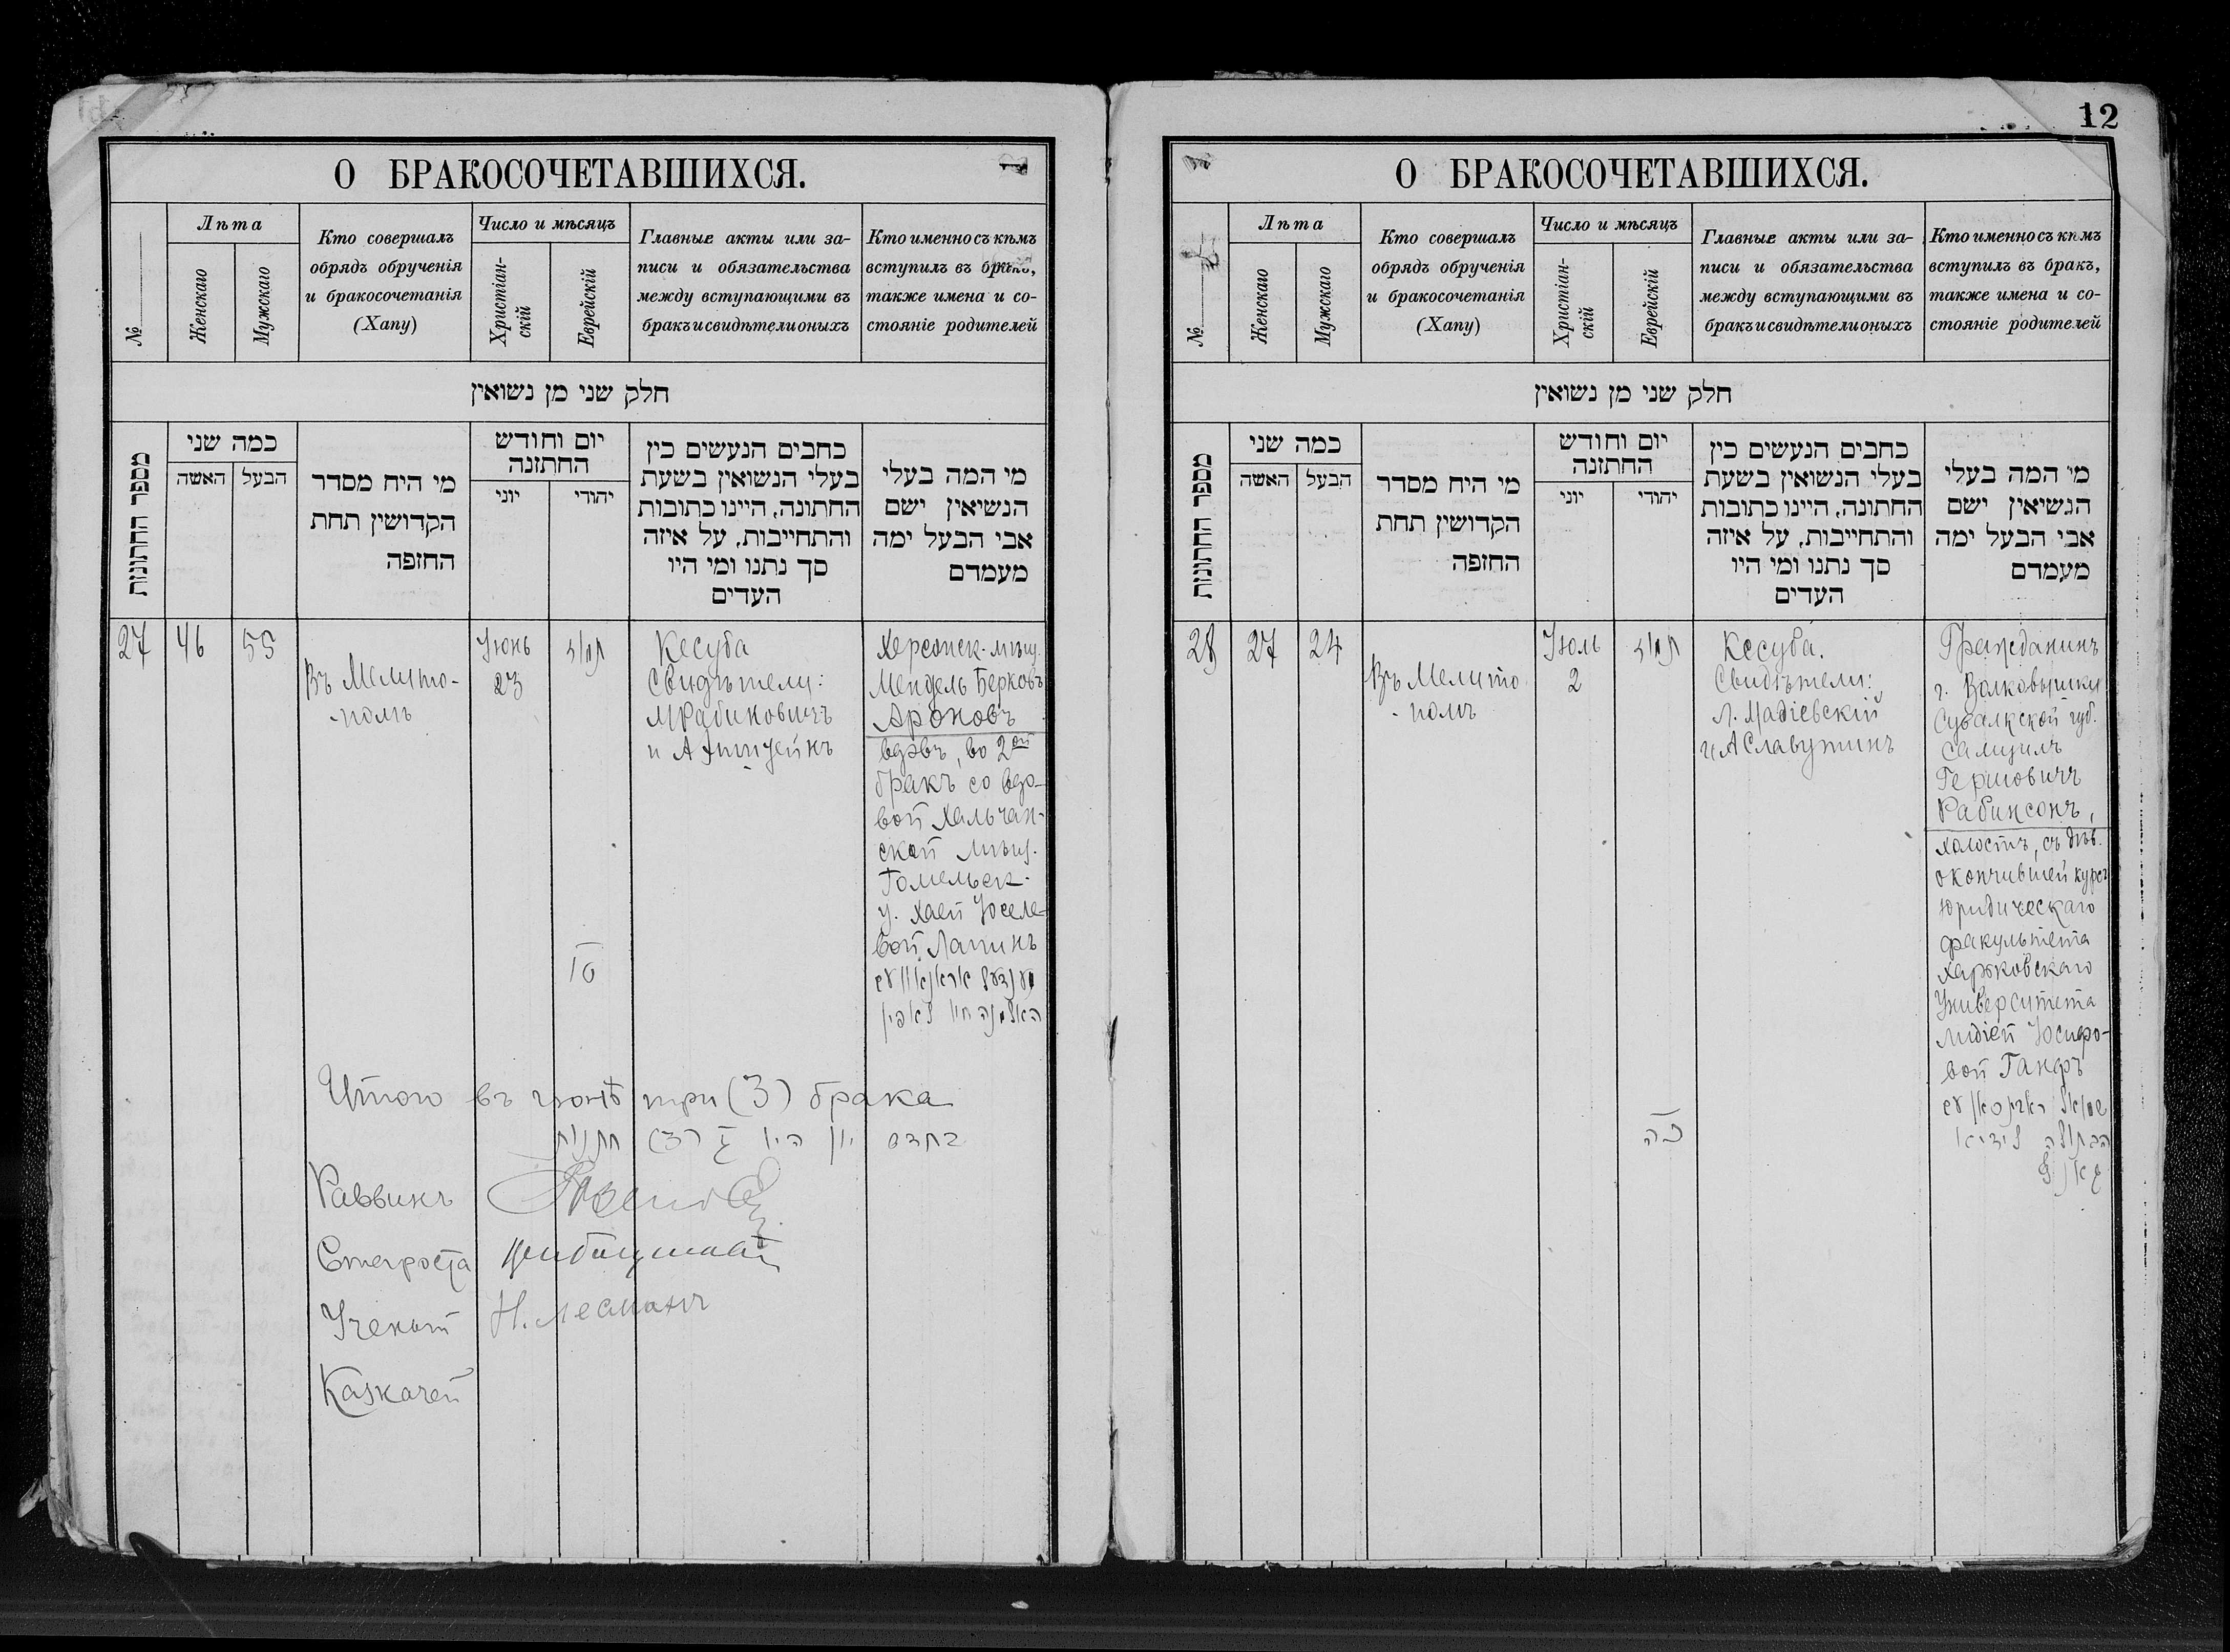 12
О БРАКОСОЧЕТАВШИХСЯ.
№
Лѣта
Женскаго
Мужскаго
Кто совершалъ
обрядъ обрученія
и бракосочетанія
(Хапу)
Число и мѣсяцъ
Христіан-
скій
Еврейскій
Главные акты или за-
писи и обязательства
между вступающими въ
бракъ и свидѣтели оныхъ
Кто именно съ кѣмъ
вступилъ въ бракъ,
также имена и со-
стояніе родителей
חלק שני מן נשואין
מספר החתונות
כמה שני
האשה
הבעל
מי היח מסדר
הקדושין תחת
החזפה
יום וחודש
החתזנה
יוני
יהודי
כחבים הנעשים כין
בעלי הנשואין בשעת
החתונה, היינו כתובות
והתחייבות, על איזה
סך נתנו ומי היו
העדים
מי המה בעלי
הנשיאין ישם
אבי הבעל ימה
מעמדם
27
46
55
Въ Мелито-
-полѣ
Іюнь
23
תמוז
טו
Кесуба
Свидѣтели:
М Рабиновичъ
и А
Херсонск. мѣщ.
Мендель Берковъ
Ароновъ
вдовъ, во 2ой
бракъ со вдо-
вой Хальчан-
ской мѣщ.
Гомельск.
у. Хаей Юселе-
вой Лапинъ
מענדעל אראנאוו עם
האלמנה חיו לאפין
Итого въ іюнѣ три (3) брака
בחדש יון היו ג (3) חתנות
Раввинъ
Староста
Ученый Н. Лесманъ
Казначей
О БРАКОСОЧЕТАВШИХСЯ.
№
Лѣта
Женскаго
Мужскаго
Кто совершалъ
обрядъ обрученія
и бракосочетанія
(Хапу)
Число и мѣсяцъ
Христіан-
скій
Еврейскій
Главные акты или за-
писи и обязательства
между вступающими въ
бракъ и свидѣтели оныхъ
Кто именно съ кѣмъ
вступилъ въ бракъ,
также имена и со-
стояніе родителей
חלק שני מן נשואין
מספר החתונות
כמה שני
האשה
הבעל
מי היח מסדר
הקדושין תחת
החזפה
יום וחודש
החתזנה
יוני
יהודי
כחבים הנעשים כין
בעלי הנשואין בשעת
החתונה, היינו כתובות
והתחייבות, על איזה
סך נתנו ומי היו
העדים
מי המה בעלי
הנשיאין ישם
אבי הבעל ימה
מעמדם
28
27
24
Въ Мелито
-полѣ
Іюль
2
תמוז
כה
Кесуба.
Свидѣтели:
Л. Мадіевскій
и А Славутинъ
Гражданинъ
г. Волковышки
Сувалкской губ.
Самуилъ
Гершовичъ
Рабинсонъ,
холостъ, съ дѣв.
окончившей курсъ
юридическаго
факультета
Харьковскаго
Университета
Лидіей Іосифо-
вой Ганфъ
שמואל ראבינסאן עם
הבתולה לידיא
גאנף